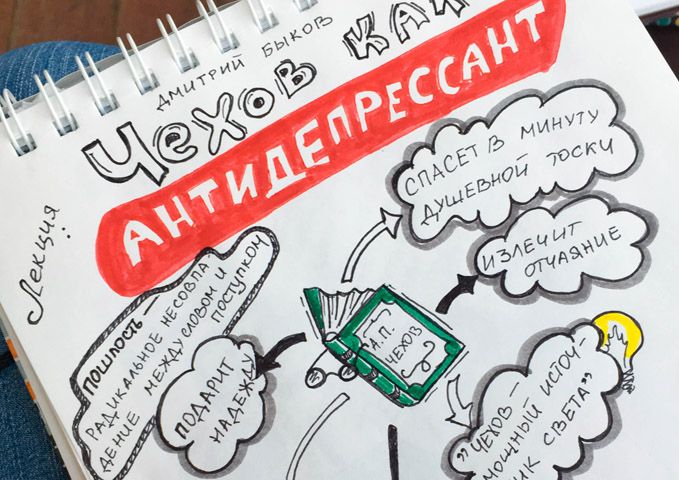 Лекция:
ДМИТРИЙ БЫКОВ
ЧЕХОВ КАК
АНТИДЕПРЕССАНТ
СПАСЕТ В МИНУТУ
ДУШЕВНОЙ ТОСКИ
ИЗЛЕЧИТ
ОТЧАЯНИЕ
ПОШЛОСТЬ –
РАДИКАЛЬНОЕ НЕСОВПА
ДЕНИЕ МЕЖДУ СЛОВОМ И
ПОСТУПКОМ
ПОДАРИТ
НАДЕЖДУ
А.П.
ЧЕХОВ
"ЧЕХОВ –
МОЩНЫЙ ИСТОЧ-
НИК СВЕТА"